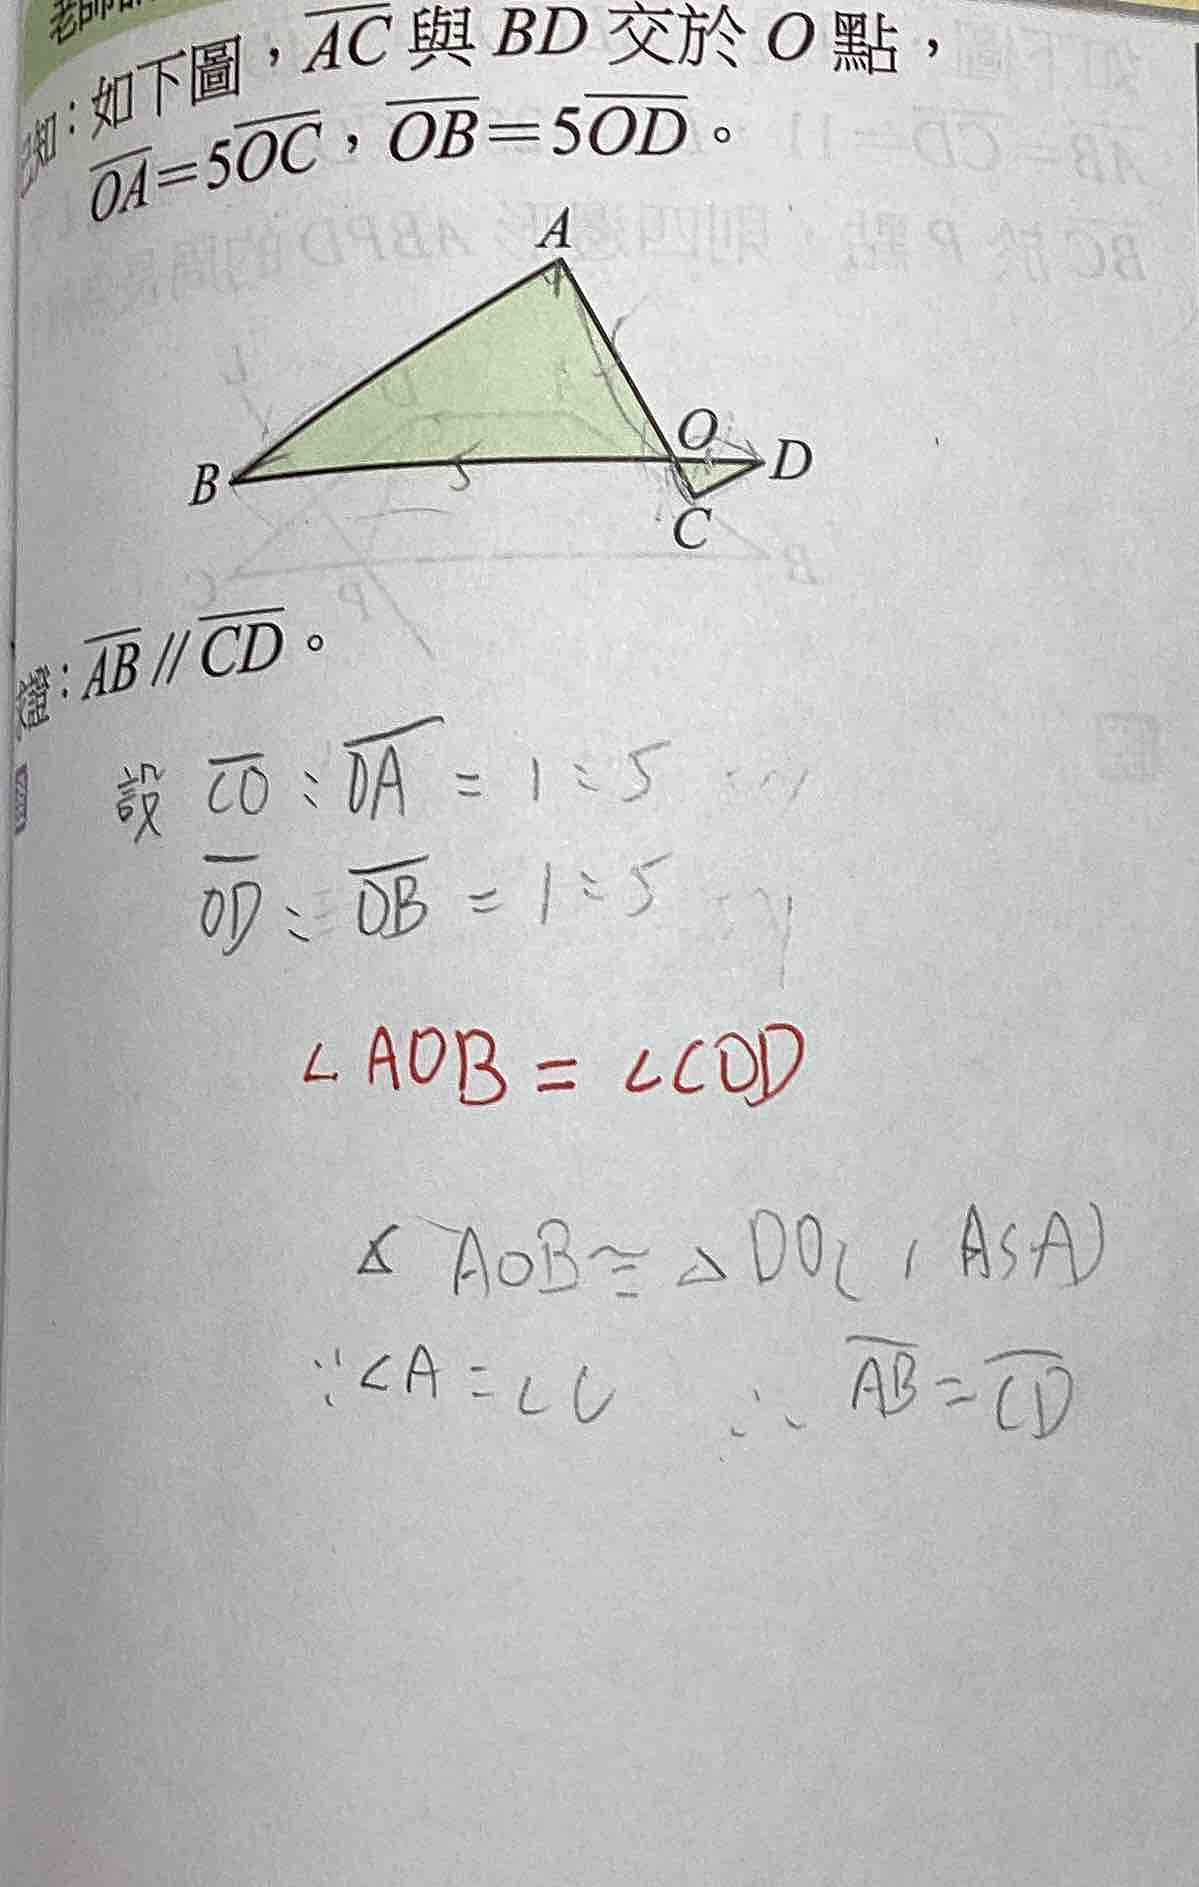 老師
已知：如下圖，AC與BD交於O點，
OA=5OC，OB=5OD。
A
O
B
D
C
：AB//CD。
設 CO：OA = 1：5
OD：OB = 1：5
∠AOB = ∠COD
△AOB≅△DOC，ASA)
∵∠A=∠C ∴AB=CD